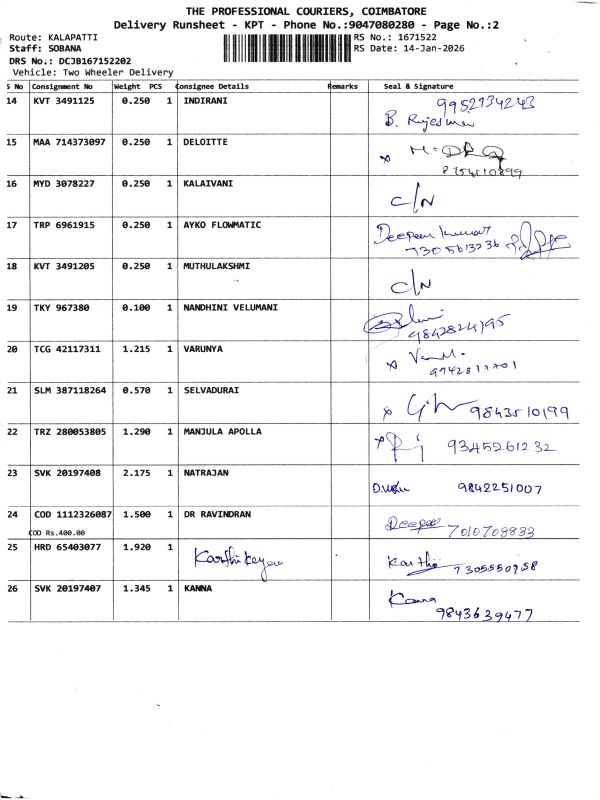 THE PROFESSIONAL COURIERS, COIMBATORE
Delivery Runsheet - KPT - Phone No.:9047080280 - Page No.:2
Route: KALAPATTI RS No.: 1671522
Staff: SOBANA RS Date: 14-Jan-2026
DRS No.: DCJB167152202
Vehicle: Two Wheeler Delivery
S No Consignment No Weight PCS Consignee Details Remarks Seal & Signature
14 KVT 3491125 0.250 1 INDIRANI 9952734243
B.
15 MAA 714373097 0.250 1 DELOITTE
16 MYD 3078227 0.250 1 KALAIVANI C/N
17 TRP 6961915 0.250 1 AYKO FLOWMATIC Deepan Kumar
7305613236
18 KVT 3491205 0.250 1 MUTHULAKSHMI C/N
19 TKY 967380 0.100 1 NANDHINI VELUMANI
9842824195
20 TCG 42117311 1.215 1 VARUNYA
21 SLM 387118264 0.570 1 SELVADURAI 9843510199
22 TRZ 280053805 1.290 1 MANJULA APOLLA 9345261232
23 SVK 20197408 2.175 1 NATRAJAN 9842251007
24 COD 1112326087 1.500 1 DR RAVINDRAN Deepan 7010708833
COD Rs.400.00
25 HRD 65403077 1.920 1 Karthikeyan Karthi 7305550958
26 SVK 20197407 1.345 1 KANNA Kanna
9843639477